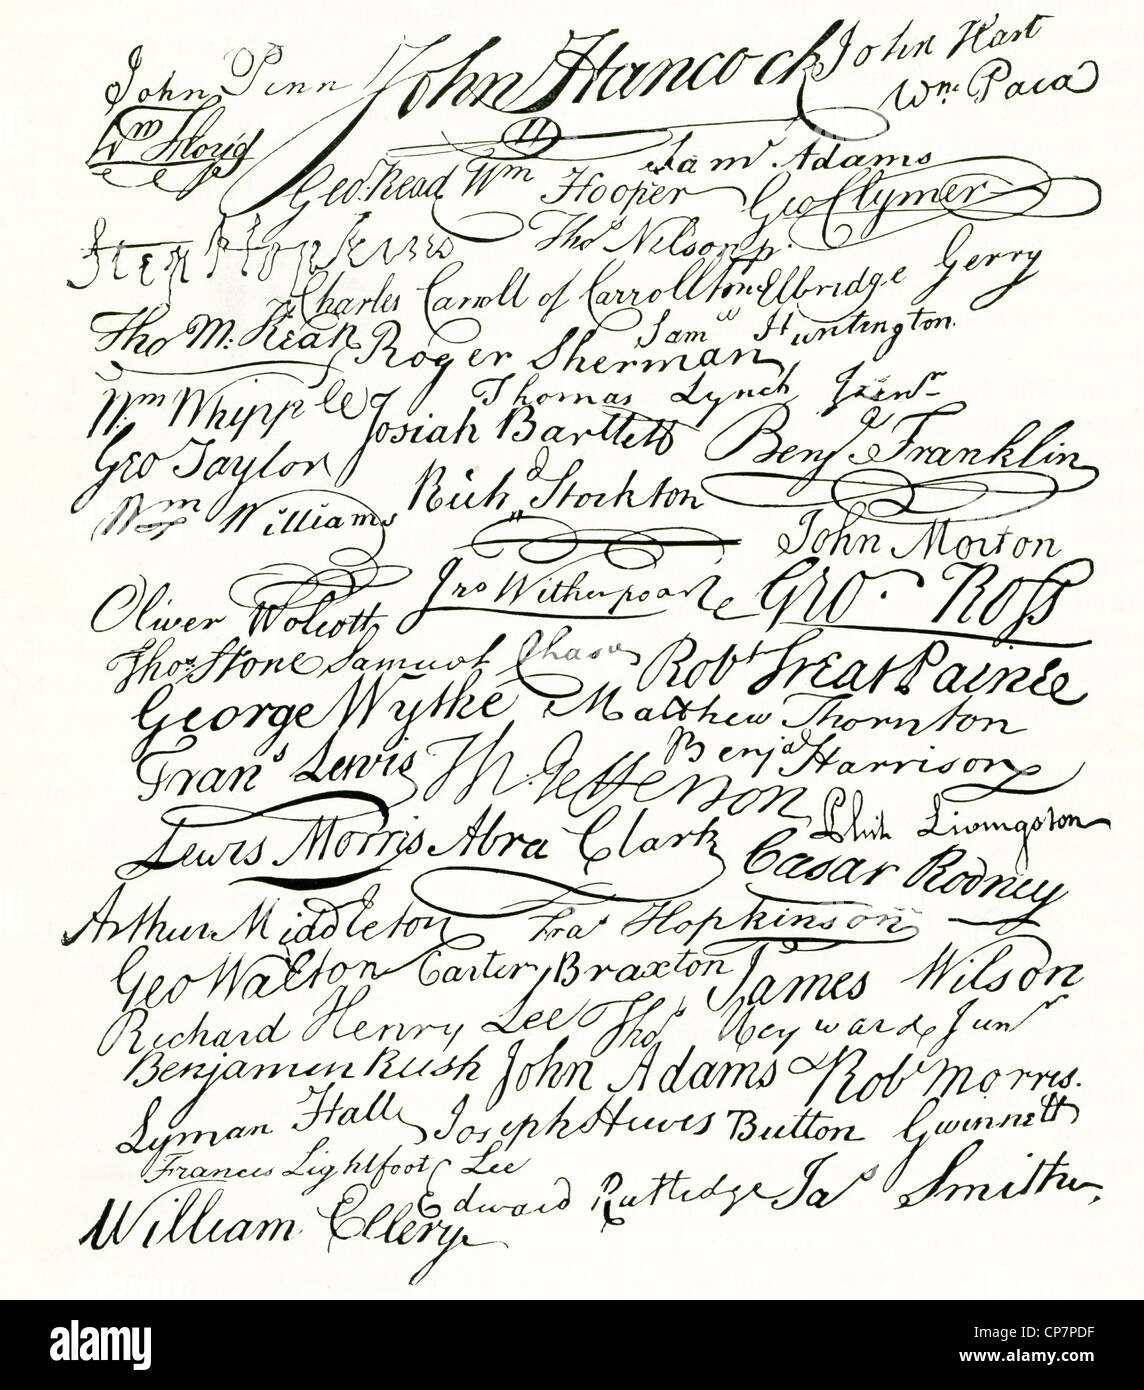 John Penn John Hancock John Hart
Wm. Paca
Wm Floyd
Saml Adams
Geo. Read Wm Hooper Geo Clymer
Step Hopkins
Thos Nelson jr.
Charles Carroll of Carrollton Elbridge Gerry
Tho M. Kean Roger Sherman Saml Huntington
Wm Whipple Thomas Lynch Junr
Josiah Bartlett Benja Franklin
Geo Taylor
Richd Stockton
Wm Williams
John Morton
Oliver Wolcott Jno Witherspoon Geo. Ross
Thos Stone Samuel Chase Robt Treat Paine
George Wythe Matthew Thornton
Frans Lewis Th Jefferson Benja Harrison
Lewis Morris Abra Clark Phil Livingston
Casar Rodney
Arthur Middleton Fras Hopkinson
Geo Walton Carter Braxton James Wilson
Richard Henry Lee Thos Heyward Junr
Benjamin Rush John Adams Robt Morris.
Lyman Hall Joseph Hewes Button Gwinnett
Francis Lightfoot Lee
William Ellery Edward Rutledge Jas Smith
alamy
Image ID: CP7PDF
www.alamy.com